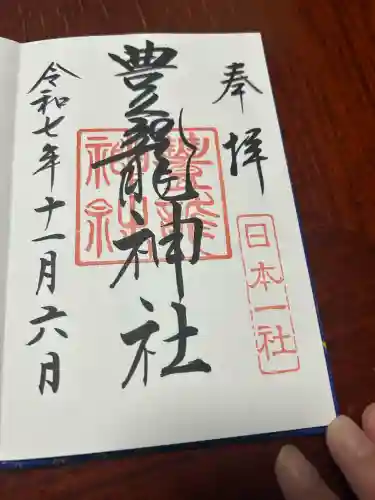 奉拝
日本一社
豊龍神社
令和七年十一月六日